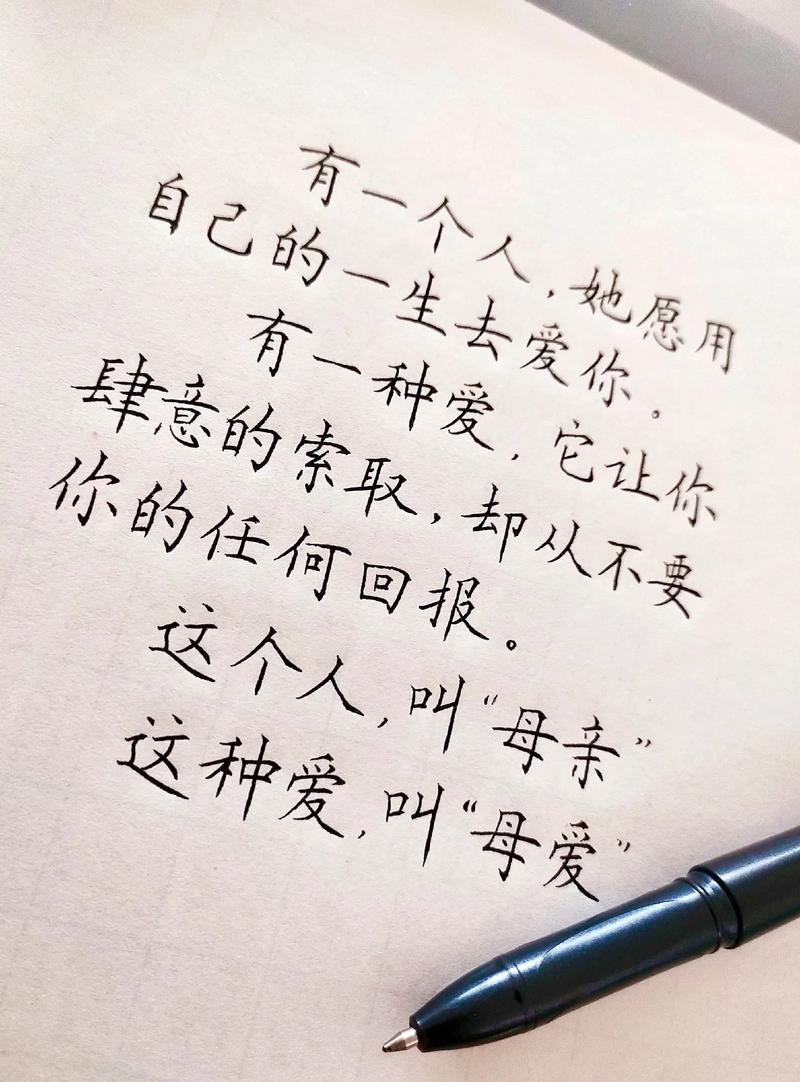 有一个人，她愿用
自己的一生去爱你。
有一种爱，它让你
肆意的索取，却从不要
你的任何回报。
这个人，叫“母亲”
这种爱，叫“母爱”